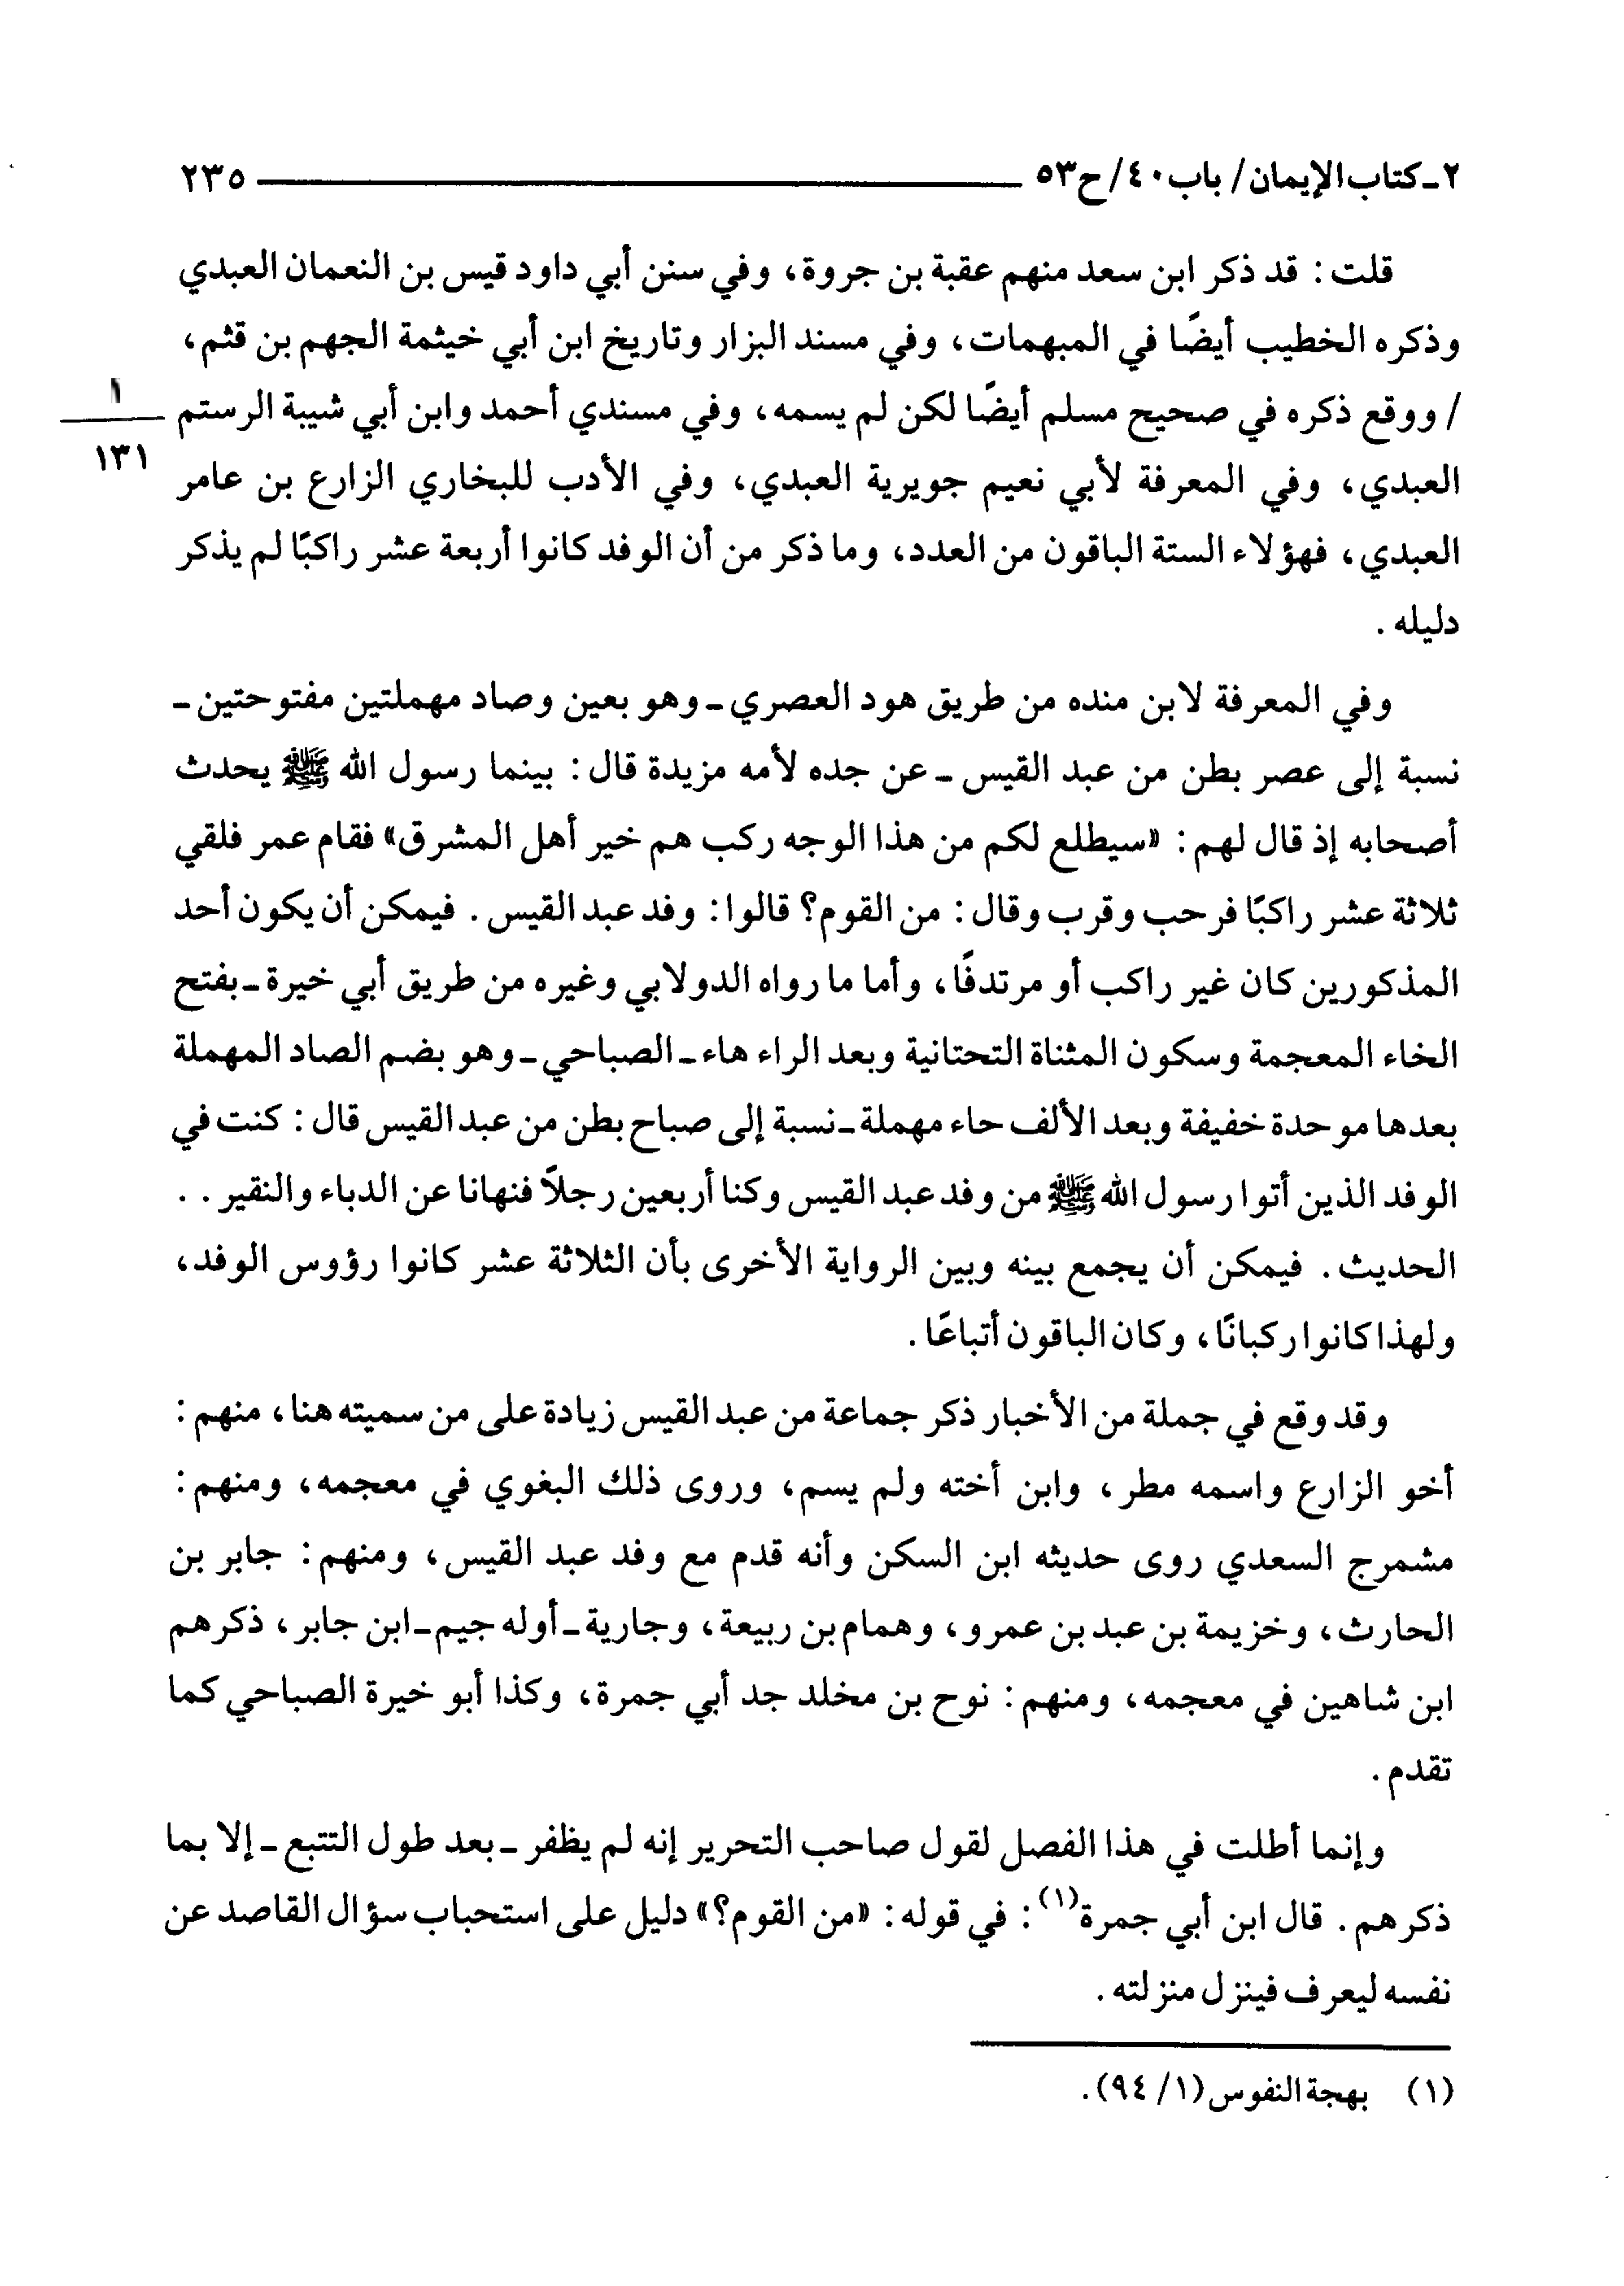 ٢-كتاب الإيمان/ باب ٤٠/ ح٥٣ ٢٣٥
قلت: قد ذكر ابن سعد منهم عقبة بن جروة، وفي سنن أبي داود قيس بن النعمان العبدي
وذكره الخطيب أيضًا في المبهمات، وفي مسند البزار وتاريخ ابن أبي خيثمة الجهم بن قثم،
/ ووقع ذكره في صحيح مسلم أيضًا لكن لم يسمه، وفي مسندي أحمد وابن أبي شيبة الرستم
١
١٣١
العبدي، وفي المعرفة لأبي نعيم جويرية العبدي، وفي الأدب للبخاري الزارع بن عامر
العبدي، فهؤلاء الستة الباقون من العدد، وما ذكر من أن الوفد كانوا أربعة عشر راكبًا لم يذكر
دليله.
وفي المعرفة لابن منده من طريق هود العصري-وهو بعين وصاد مهملتين مفتوحتين-
نسبة إلى عصر بطن من عبد القيس-عن جده لأمه مزيدة قال: بينما رسول الله ﷺ يحدث
أصحابه إذ قال لهم: «سيطلع لكم من هذا الوجه ركب هم خير أهل المشرق» فقام عمر فلقي
ثلاثة عشر راكبًا فرحب وقرب وقال: من القوم؟ قالوا: وفد عبد القيس. فيمكن أن يكون أحد
المذكورين كان غير راكب أو مرتدفًا، وأما ما رواه الدولابي وغيره من طريق أبي خيرة-بفتح
الخاء المعجمة وسكون المثناة التحتانية وبعد الراء هاء-الصباحي-وهو بضم الصاد المهملة
بعدها موحدة خفيفة وبعد الألف حاء مهملة-نسبة إلى صباح بطن من عبد القيس قال: كنت في
الوفد الذين أتوا رسول الله ﷺ من وفد عبد القيس وكنا أربعين رجلاً فنهانا عن الدباء والنقير..
الحديث. فيمكن أن يجمع بينه وبين الرواية الأخرى بأن الثلاثة عشر كانوا رؤوس الوفد،
ولهذا كانوا ركبانًا، وكان الباقون أتباعًا.
وقد وقع في جملة من الأخبار ذكر جماعة من عبد القيس زيادة على من سميته هنا، منهم:
أخو الزارع واسمه مطر، وابن أخته ولم يسم، وروى ذلك البغوي في معجمه، ومنهم:
مشمرج السعدي روى حديثه ابن السكن وأنه قدم مع وفد عبد القيس، ومنهم: جابر بن
الحارث، وخزيمة بن عبد بن عمرو، وهمام بن ربيعة، وجارية-أوله جيم-ابن جابر، ذكرهم
ابن شاهين في معجمه، ومنهم: نوح بن مخلد جد أبي جمرة، وكذا أبو خيرة الصباحي كما
تقدم.
وإنما أطلت في هذا الفصل لقول صاحب التحرير إنه لم يظفر-بعد طول التتبع-إلا بما
ذكرهم. قال ابن أبي جمرة(١): في قوله: «من القوم؟» دليل على استحباب سؤال القاصد عن
نفسه ليعرف فينزل منزلته.
(١) بهجة النفوس (١/ ٩٤).